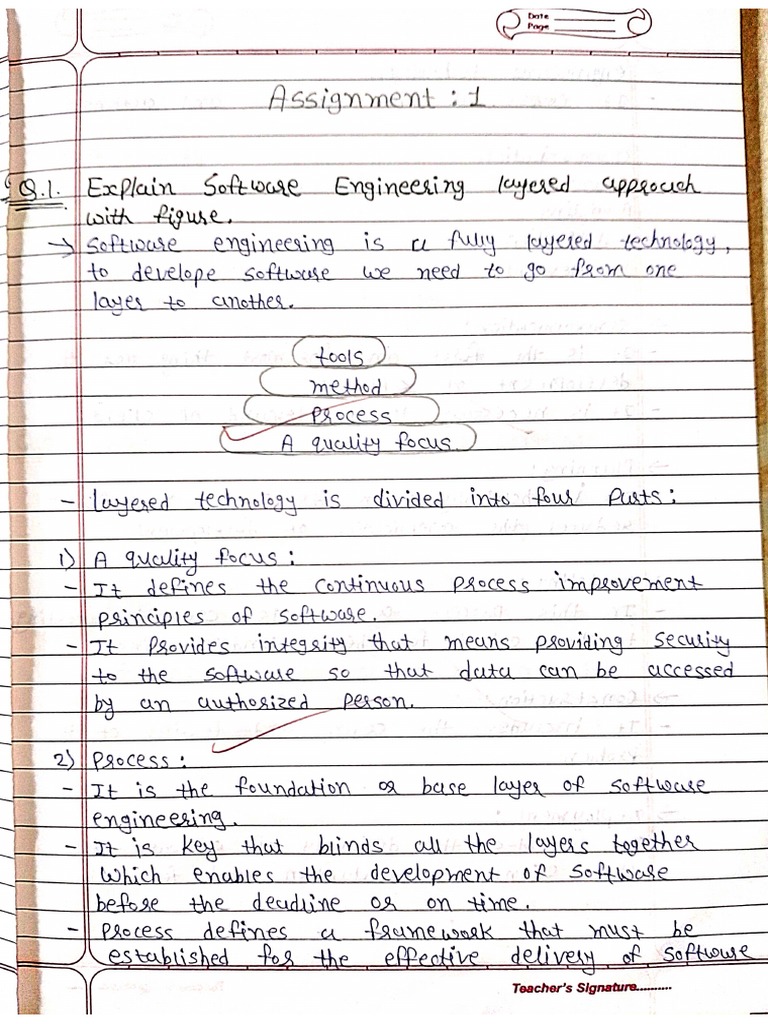 Date
Page
Assignment : 1
Q.1. Explain Software Engineering layered approach
with figure.
→ Software engineering is a fully layered technology,
to develope software we need to go from one
layer to another.
tools
method
process
A quality focus
- Layered technology is divided into four parts:
1) A quality focus:
- It defines the continuous process improvement
principles of software.
- It provides integrity that means providing security
to the software so that data can be accessed
by an authorized person.
2) Process:
- It is the foundation or base layer of software
engineering.
- It is key that blinds all the layers together
which enables the development of software
before the deadline or on time.
- Process defines a framework that must be
established for the effective delivery of software
Teacher's Signature..........